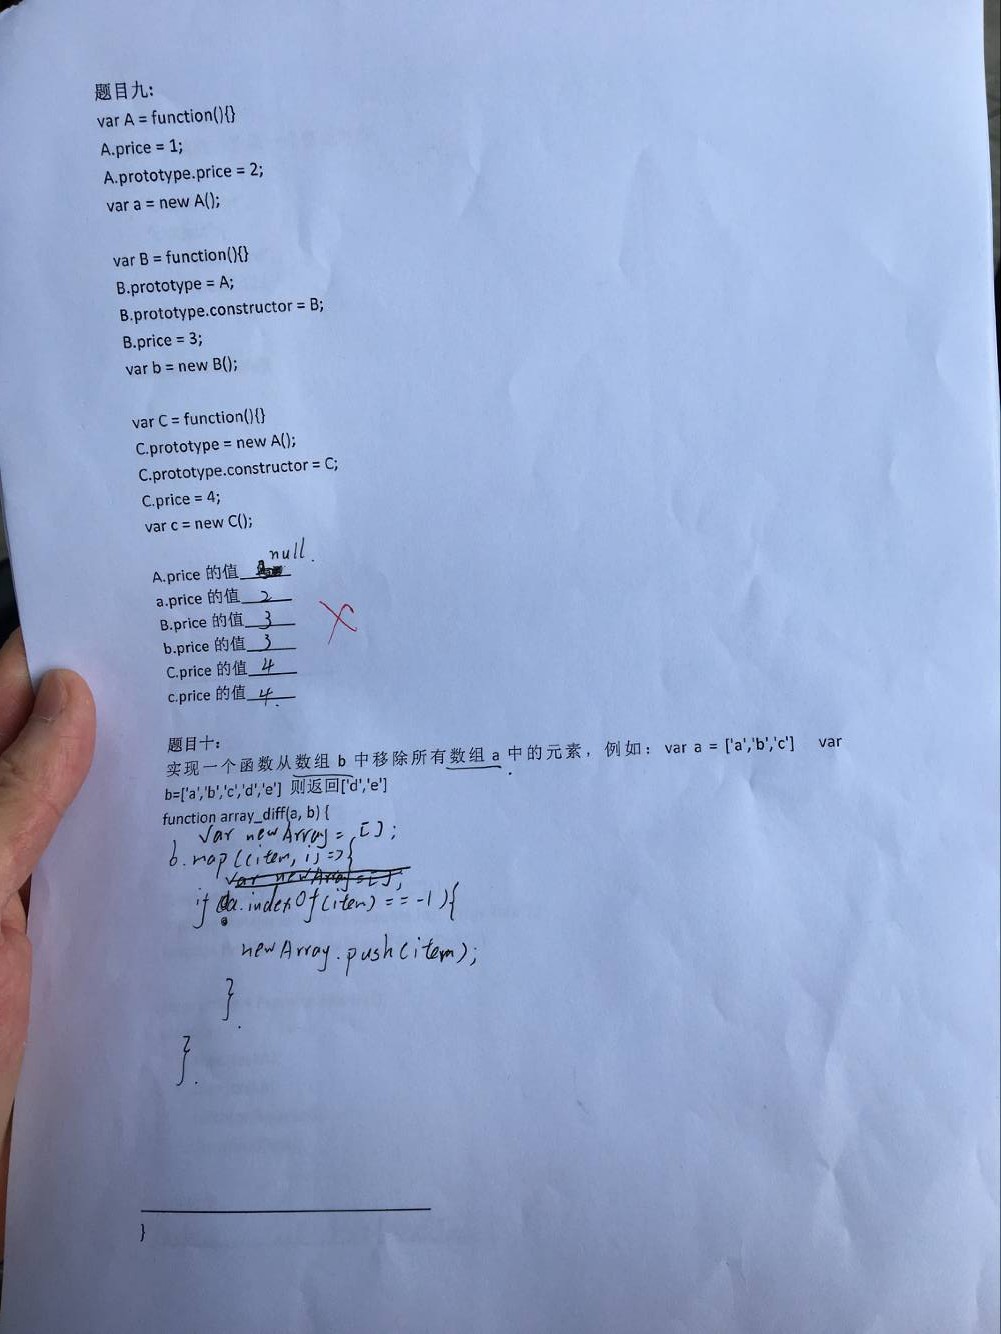 题目九:
var A = function(){}
A.price = 1;
A.prototype.price = 2;
var a = new A();
var B = function(){}
B.prototype = A;
B.prototype.constructor = B;
B.price = 3;
var b = new B();
var C = function(){}
C.prototype = new A();
C.prototype.constructor = C;
C.price = 4;
var c = new C();
null.
A.price 的值
a.price 的值 2
B.price 的值 3
b.price 的值 3
C.price 的值 4
c.price 的值 4.
题目十:
实现一个函数从数组 b 中移除所有数组 a 中的元素，例如：var a = ['a','b','c'] var
b=['a','b','c','d','e'] 则返回['d','e']
function array_diff(a, b) {
var newArray = [];
b.map((item, i) => {
var newArray = [];
if (a.indexOf(item) == -1) {
newArray.push(item);
}.
}.
}